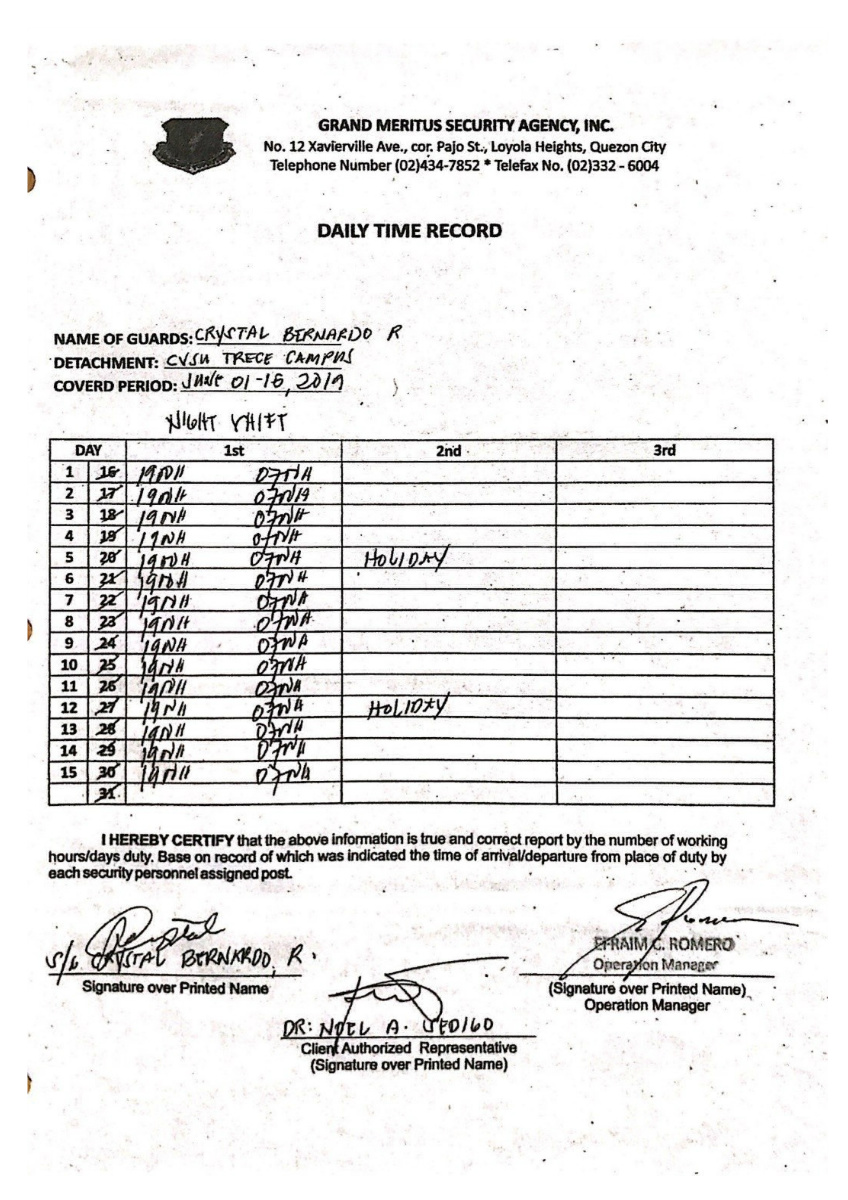 GRAND MERITUS SECURITY AGENCY, INC.
No. 12 Xavierville Ave., cor. Pajo St., Loyola Heights, Quezon City
Telephone Number (02)434-7852 * Telefax No. (02)332 - 6004
DAILY TIME RECORD
NAME OF GUARDS: CRYSTAL BERNARDO R
DETACHMENT: CVSU TRECE CAMPUS
COVERD PERIOD: JUNE 01-15, 2019
NIGHT SHIFT
DAY 1st 2nd 3rd
1 16 19NH 07NH
2 17 19NH 07NH
3 18 19NH 07NH
4 19 19NH 07NH
5 20 19NH 07NH HOLIDAY
6 21 19NH 07NH
7 22 19NH 07NH
8 23 19NH 07NH
9 24 19NH 07NH
10 25 19NH 07NH
11 26 19NH 07NH
12 27 19NH 07NH HOLIDAY
13 28 19NH 07NH
14 29 19NH 07NH
15 30 19NH 07NH
31
I HEREBY CERTIFY that the above information is true and correct report by the number of working
hours/days duty. Base on record of which was indicated the time of arrival/departure from place of duty by
each security personnel assigned post.
S/G CRYSTAL BERNARDO, R.
Signature over Printed Name
EFRAIM C. ROMERO
Operation Manager
(Signature over Printed Name)
Operation Manager
DR: NOEL A. SEDIGO
Client Authorized Representative
(Signature over Printed Name)